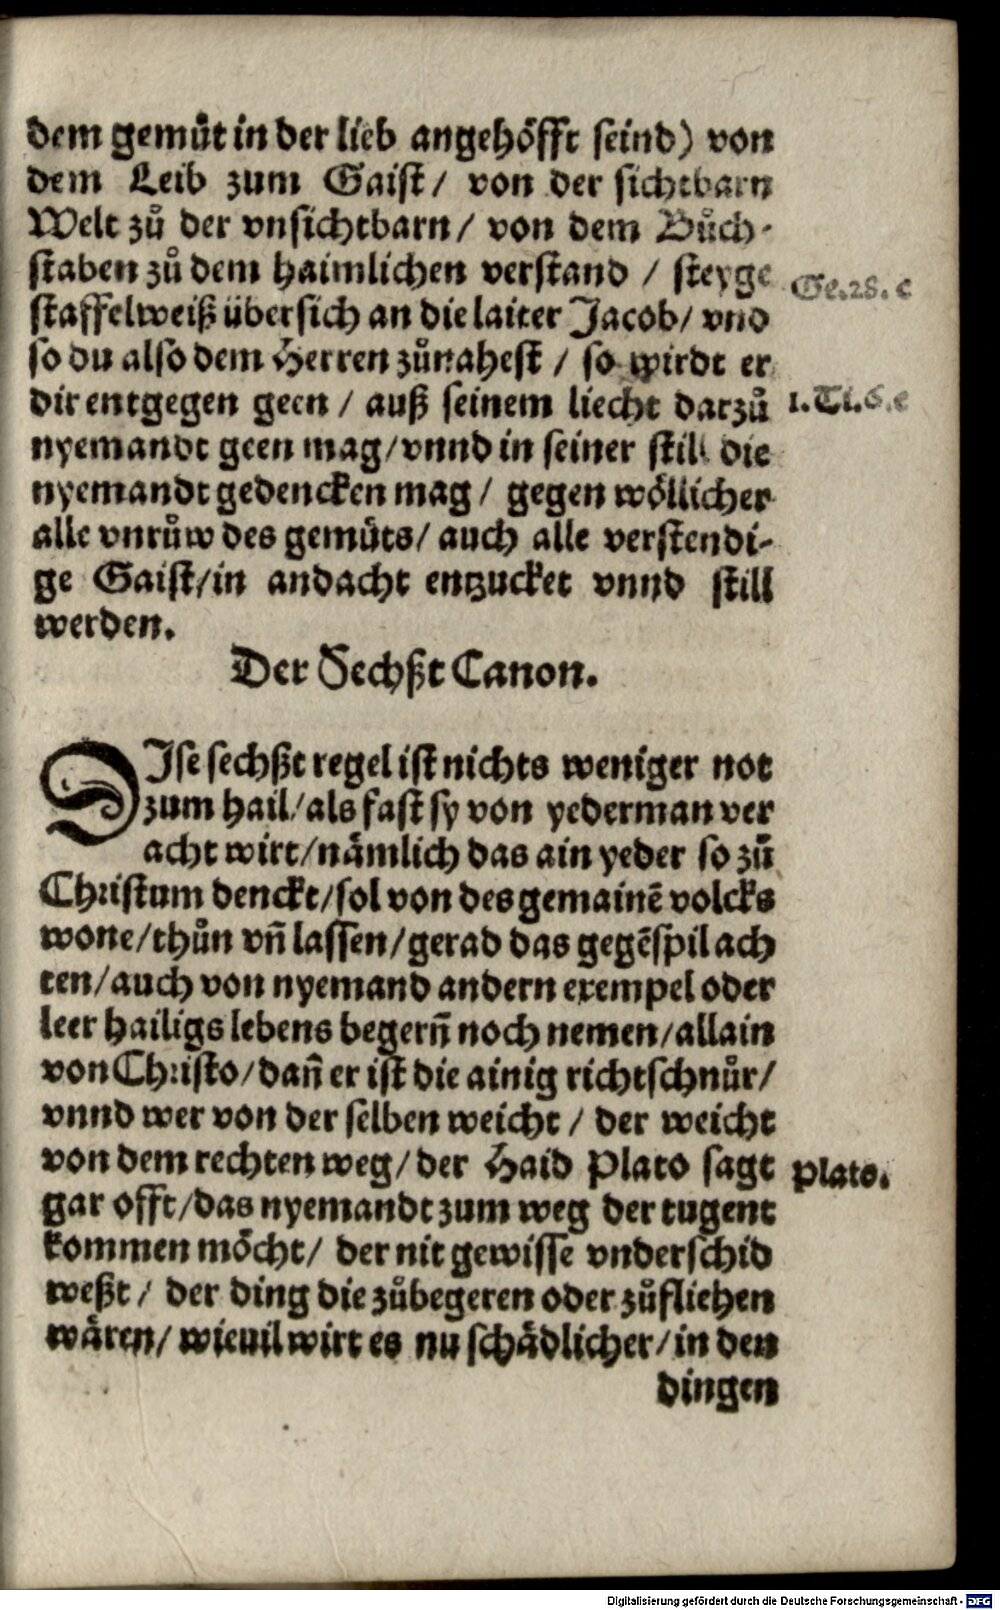 dem gemuͤt in der lieb angehoͤfft seind) von
dem Leib zum Gaist/ von der sichtbarn
Welt zuͦ der vnsichtbarn/ von dem Buͦch-
staben zuͦ dem haimlichen verstand / steyge
Ge.28.c
staffelweiß übersich an die laiter Jacob/ vnd
so du also dem Herren zuͦnahest / so wirdt er
dir entgegen geen / auß seinem liecht darzuͦ
1.Ti.6.c
nyemandt geen mag/vnnd in seiner still die
nyemandt gedencken mag / gegen woͤllicher
alle vnruͦw des gemuͤts/ auch alle verstendi-
ge Gaist/in andacht entzucket vnnd still
werden.
Der Sechßt Canon.
DIse sechßt regel ist nichts weniger not
zum hail/als fast sy von yederman ver
acht wirt/naͤmlich das ain yeder so zuͦ
Christum denckt/sol von des gemainē volcks
wone/thuͦn vñ lassen/gerad das gegēspil ach
ten/auch von nyemand andern exempel oder
leer hailigs lebens begerñ noch nemen/allain
von Christo/dañ er ist die ainig richtschnuͦr/
vnnd wer von der selben weicht / der weicht
von dem rechten weg/der Haid Plato sagt
Plato.
gar offt/das nyemandt zum weg der tugent
kommen moͤcht/ der nit gewisse vnderschid
weßt / der ding die zuͦbegeren oder zuͦfliehen
waͤren/ wieuil wirt es nu schaͤdlicher/in den
dingen
Digitalisierung gefördert durch die Deutsche Forschungsgemeinschaft - DFG